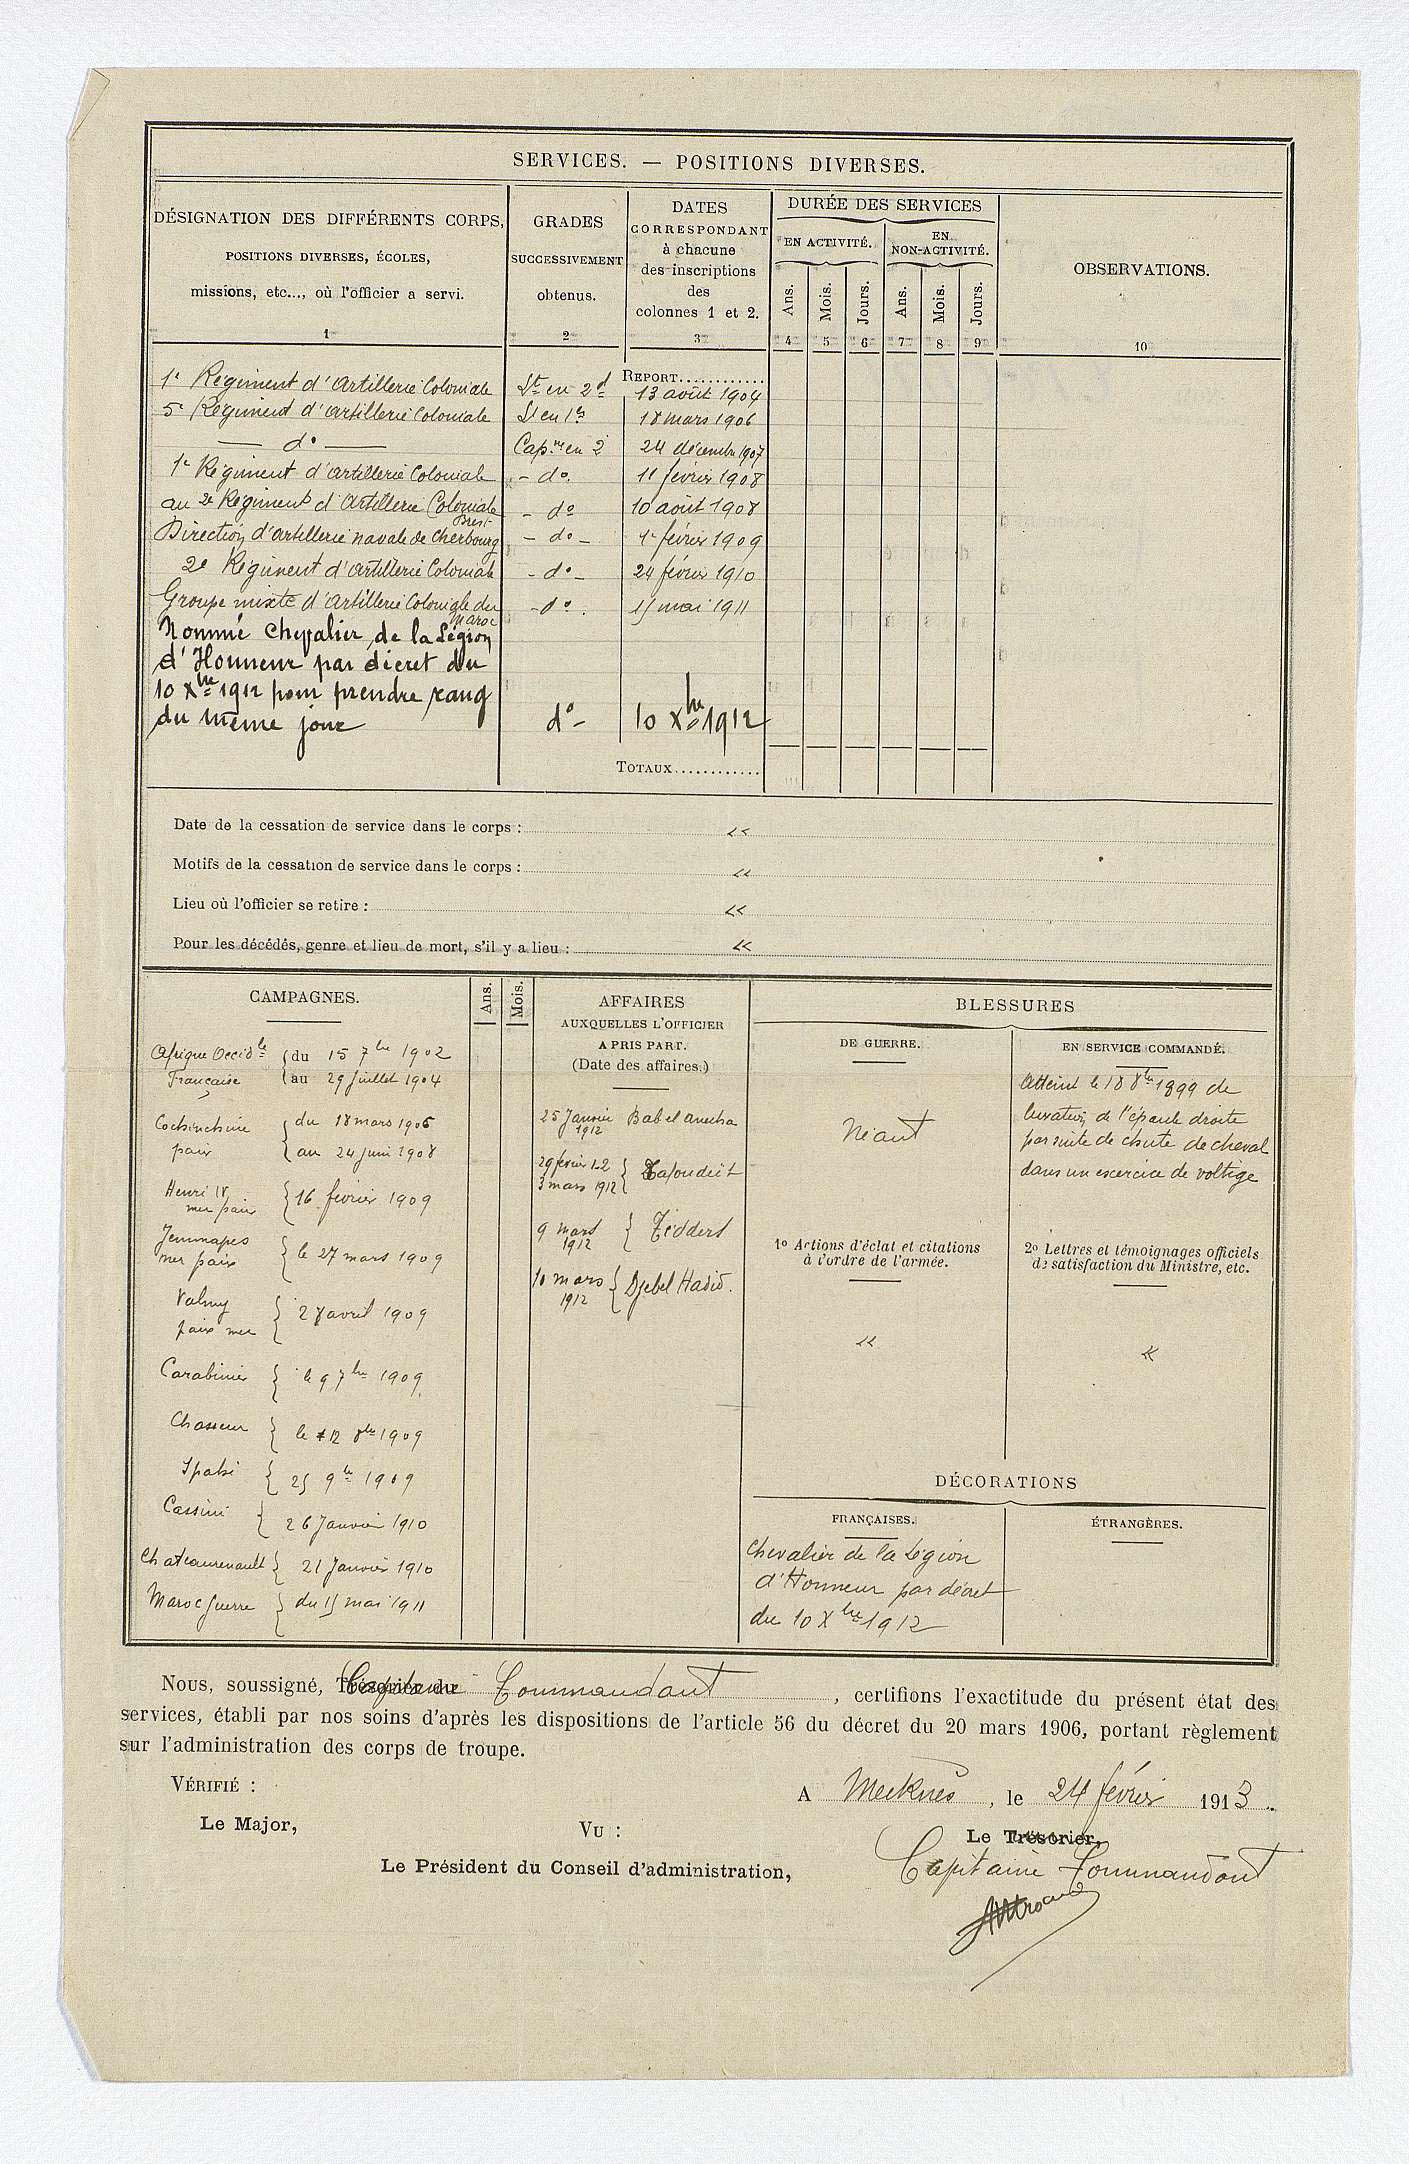 SERVICES. — POSITIONS DIVERSES.
DÉSIGNATION DES DIFFÉRENTS CORPS,
POSITIONS DIVERSES, ÉCOLES,
missions, etc..., où l'officier a servi.
1
GRADES
SUCCESSIVEMENT
obtenus.
2
DATES
CORRESPONDANT
à chacune
des inscriptions
des
colonnes 1 et 2.
3
DURÉE DES SERVICES
EN ACTIVITÉ.
EN
NON-ACTIVITÉ.
Ans.
Mois.
Jours.
Ans.
Mois.
Jours.
4 5 6 7 8 9
OBSERVATIONS.
10
REPORT............
1e Régiment d'Artillerie Coloniale Lt en 2d 13 août 1904
5e Régiment d'artillerie Coloniale Lt en 1er 18 mars 1906
— do — Capne en 2 24 décembre 1907
1e Régiment d'artillerie Coloniale - do. 11 février 1908
au 2e Régiment d'Artillerie Coloniale - do 10 août 1908
Brest
Direction d'artillerie navale de Cherbourg - do - 1e février 1909
2e Régiment d'artillerie Coloniale - do - 24 février 1910
Groupe mixte d'Artillerie Coloniale du - do. 15 mai 1911
Maroc
Nommé Chevalier de la Légion
d'Honneur par décret du
10 Xbre 1912 pour prendre rang
du même jour do- 10 Xbre 1912
TOTAUX............
Date de la cessation de service dans le corps : «
Motifs de la cessation de service dans le corps : «
Lieu où l'officier se retire : «
Pour les décédés, genre et lieu de mort, s'il y a lieu : «
CAMPAGNES.
Ans.
Mois.
Afrique Occidle du 15 7bre 1902
Française au 29 juillet 1904
Cochinchine du 18 mars 1906
paix au 24 juin 1908
Henri IV
mer paix 16 février 1909
Jemmapes
mer paix le 27 mars 1909
Valmy
paix mer 28 avril 1909
Carabinier le 9 7bre 1909
Chasseur le 12 8bre 1909
Spahi 25 9bre 1909
Cassini 26 Janvier 1910
Chateaurenault 21 Janvier 1910
Maroc guerre du 15 mai 1911
AFFAIRES
AUXQUELLES L'OFFICIER
A PRIS PART.
(Date des affaires.)
25 Janvier Bab el
1912
29 février 12
3 mars 1912
9 mars Tiddert
1912
10 mars Djebel Hadid.
1912
BLESSURES
DE GUERRE.
Néant
EN SERVICE COMMANDÉ.
Atteint le 18 8bre 1899 de
luxation de l'épaule droite
par suite de chute de cheval
dans un exercice de voltige
1o Actions d'éclat et citations
à l'ordre de l'armée.
«
2o Lettres et témoignages officiels
de satisfaction du Ministre, etc.
«
DÉCORATIONS
FRANÇAISES.
Chevalier de la Légion
d'Honneur par décret
du 10 Xbre 1912
ÉTRANGÈRES.
Nous, soussigné, Trésorier du Capitaine Commandant, certifions l'exactitude du présent état des
services, établi par nos soins d'après les dispositions de l'article 56 du décret du 20 mars 1906, portant règlement
sur l'administration des corps de troupe.
A Meknès, le 24 février 1913.
VÉRIFIÉ :
Le Major,
VU :
Le Président du Conseil d'administration,
Le Trésorier,
Capitaine Commandant